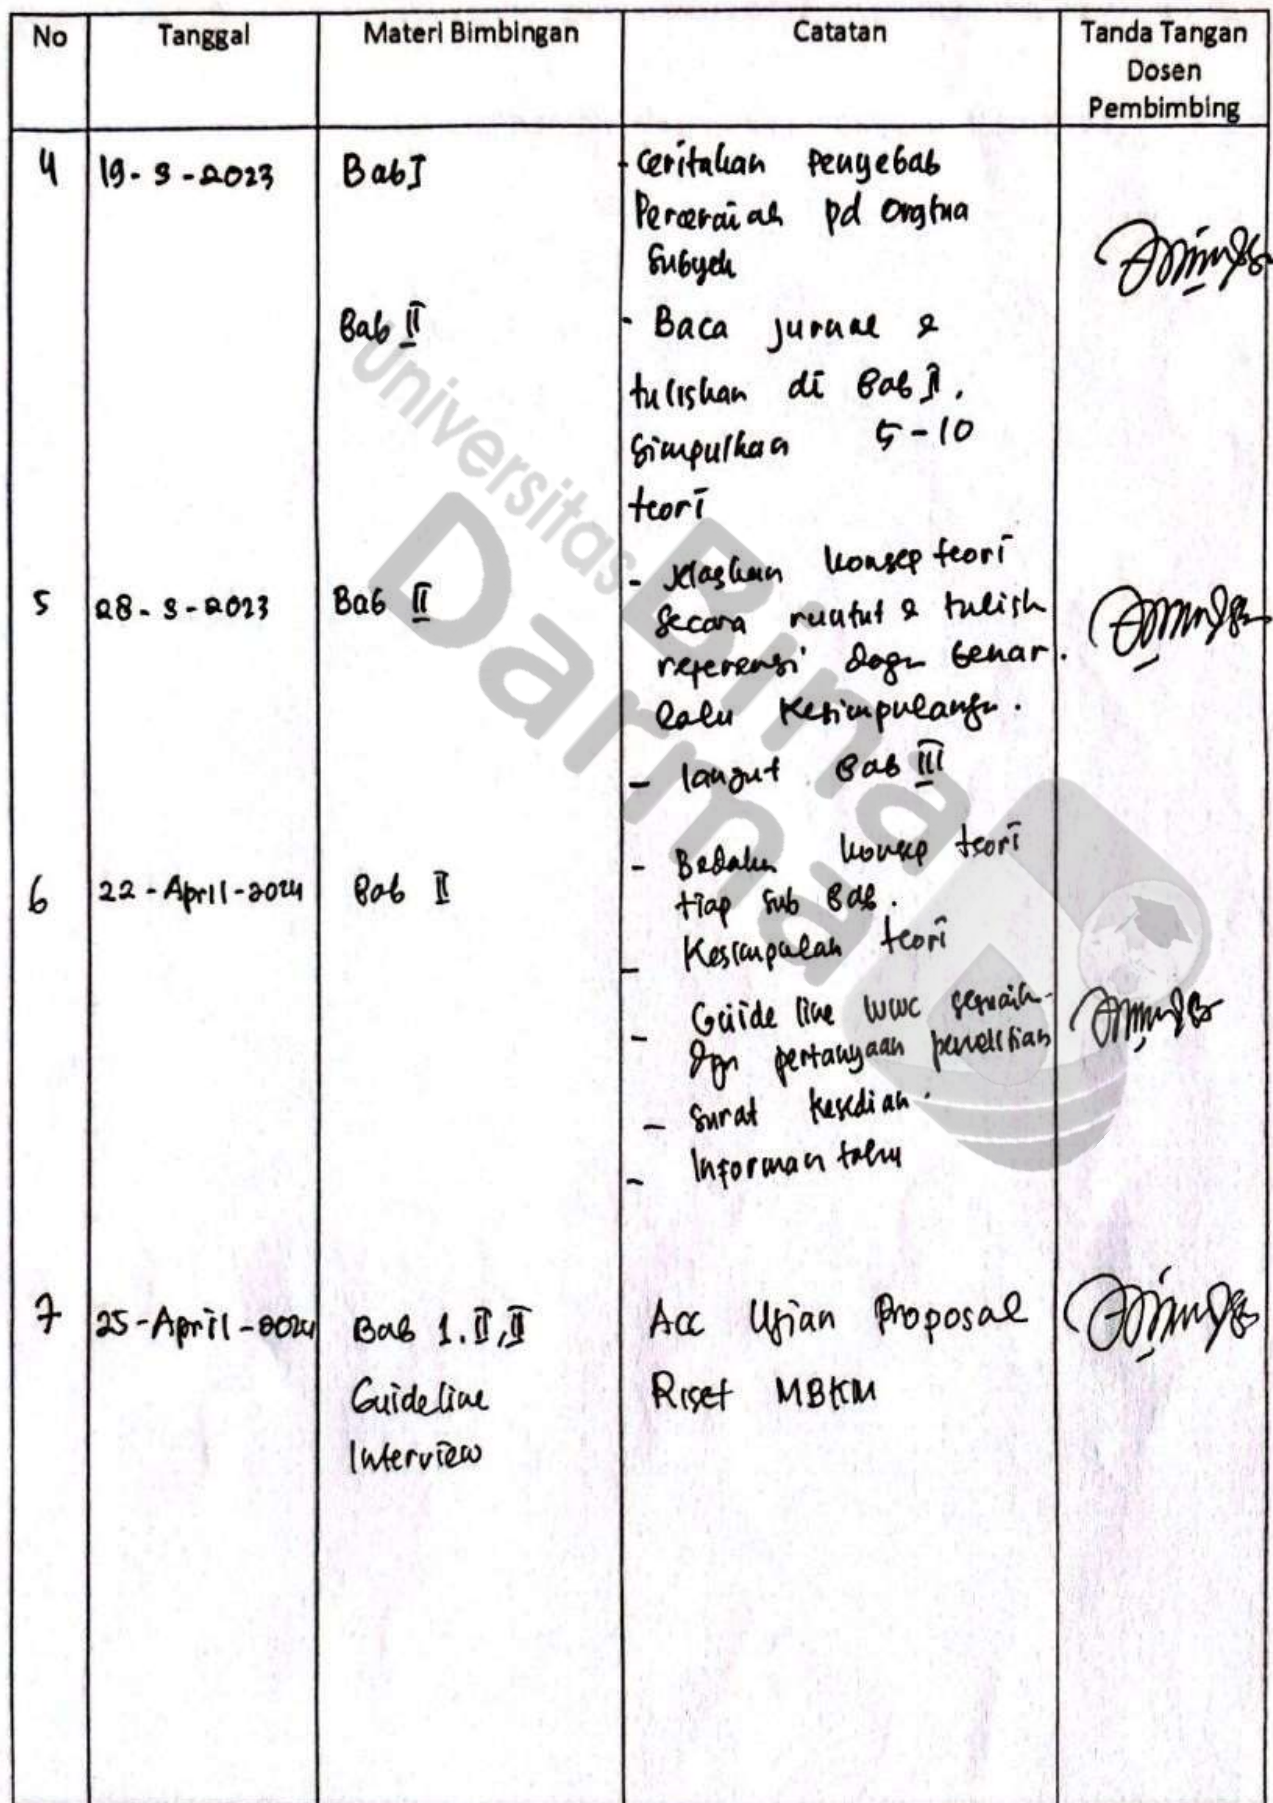 No Tanggal Materi Bimbingan Catatan Tanda Tangan
Dosen
Pembimbing
4 19-3-2023 Bab I - Ceritakan Penyebab
Perceraian pd Orgtua
Subyek
Bab II - Baca jurnal &
tuliskan di Bab II.
Simpulkan 5-10
teori
5 28-3-2023 Bab II - Jelaskan konsep teori
Secara runtut & tulish
referensi dngn benar.
lalu Kesimpulannya.
- lanjut Bab III
6 22-April-2024 Bab II - Bedakan konsep teori
tiap sub Bab.
- Kesimpulan teori
- Guide line wwc sesuaik-
dgn pertanyaan penelitian
- Surat kesedian.
- Informan tahu
7 25-April-2024 Bab 1. II, II Acc Ujian Proposal
Guideline Riset MBKM
Interview
Universitas
Bina
Darma